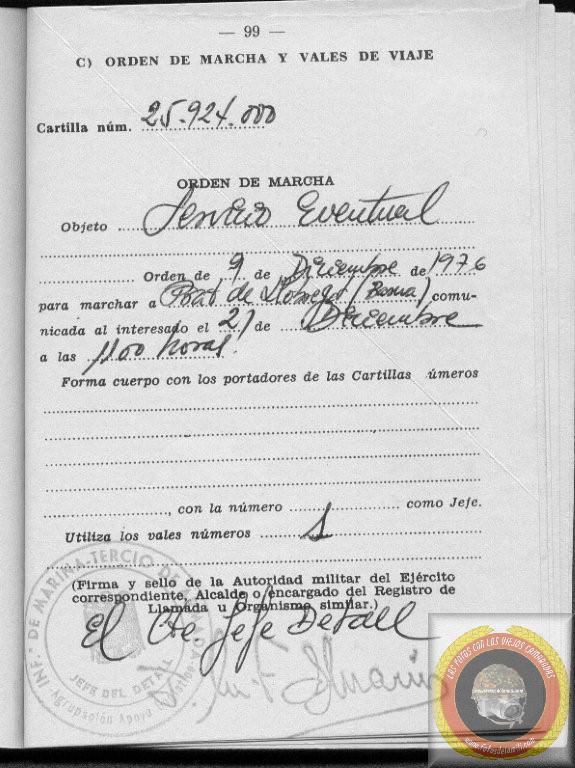 — 99 —
C) ORDEN DE MARCHA Y VALES DE VIAJE
Cartilla núm. 25.924.000
ORDEN DE MARCHA
Objeto Servicio Eventual
Orden de 9 de Diciembre de 1976
para marchar a Prat de Llobregat comu-
nicada al interesado el 21 de Diciembre
a las 1100 horas.
Forma cuerpo con los portadores de las Cartillas úmeros
, con la número como Jefe.
Utiliza los vales números 1
(Firma y sello de la Autoridad militar del Ejército
correspondiente, Alcalde o encargado del Registro de
Llamada u Organismo similar.)
El Cte Jefe Detall
INFª DE MARINA-TERCIO DE
JEFE DEL DETALL
Agrupación Apoyo
LAS FOTOS CON LOS VIEJOS CAMARADAS